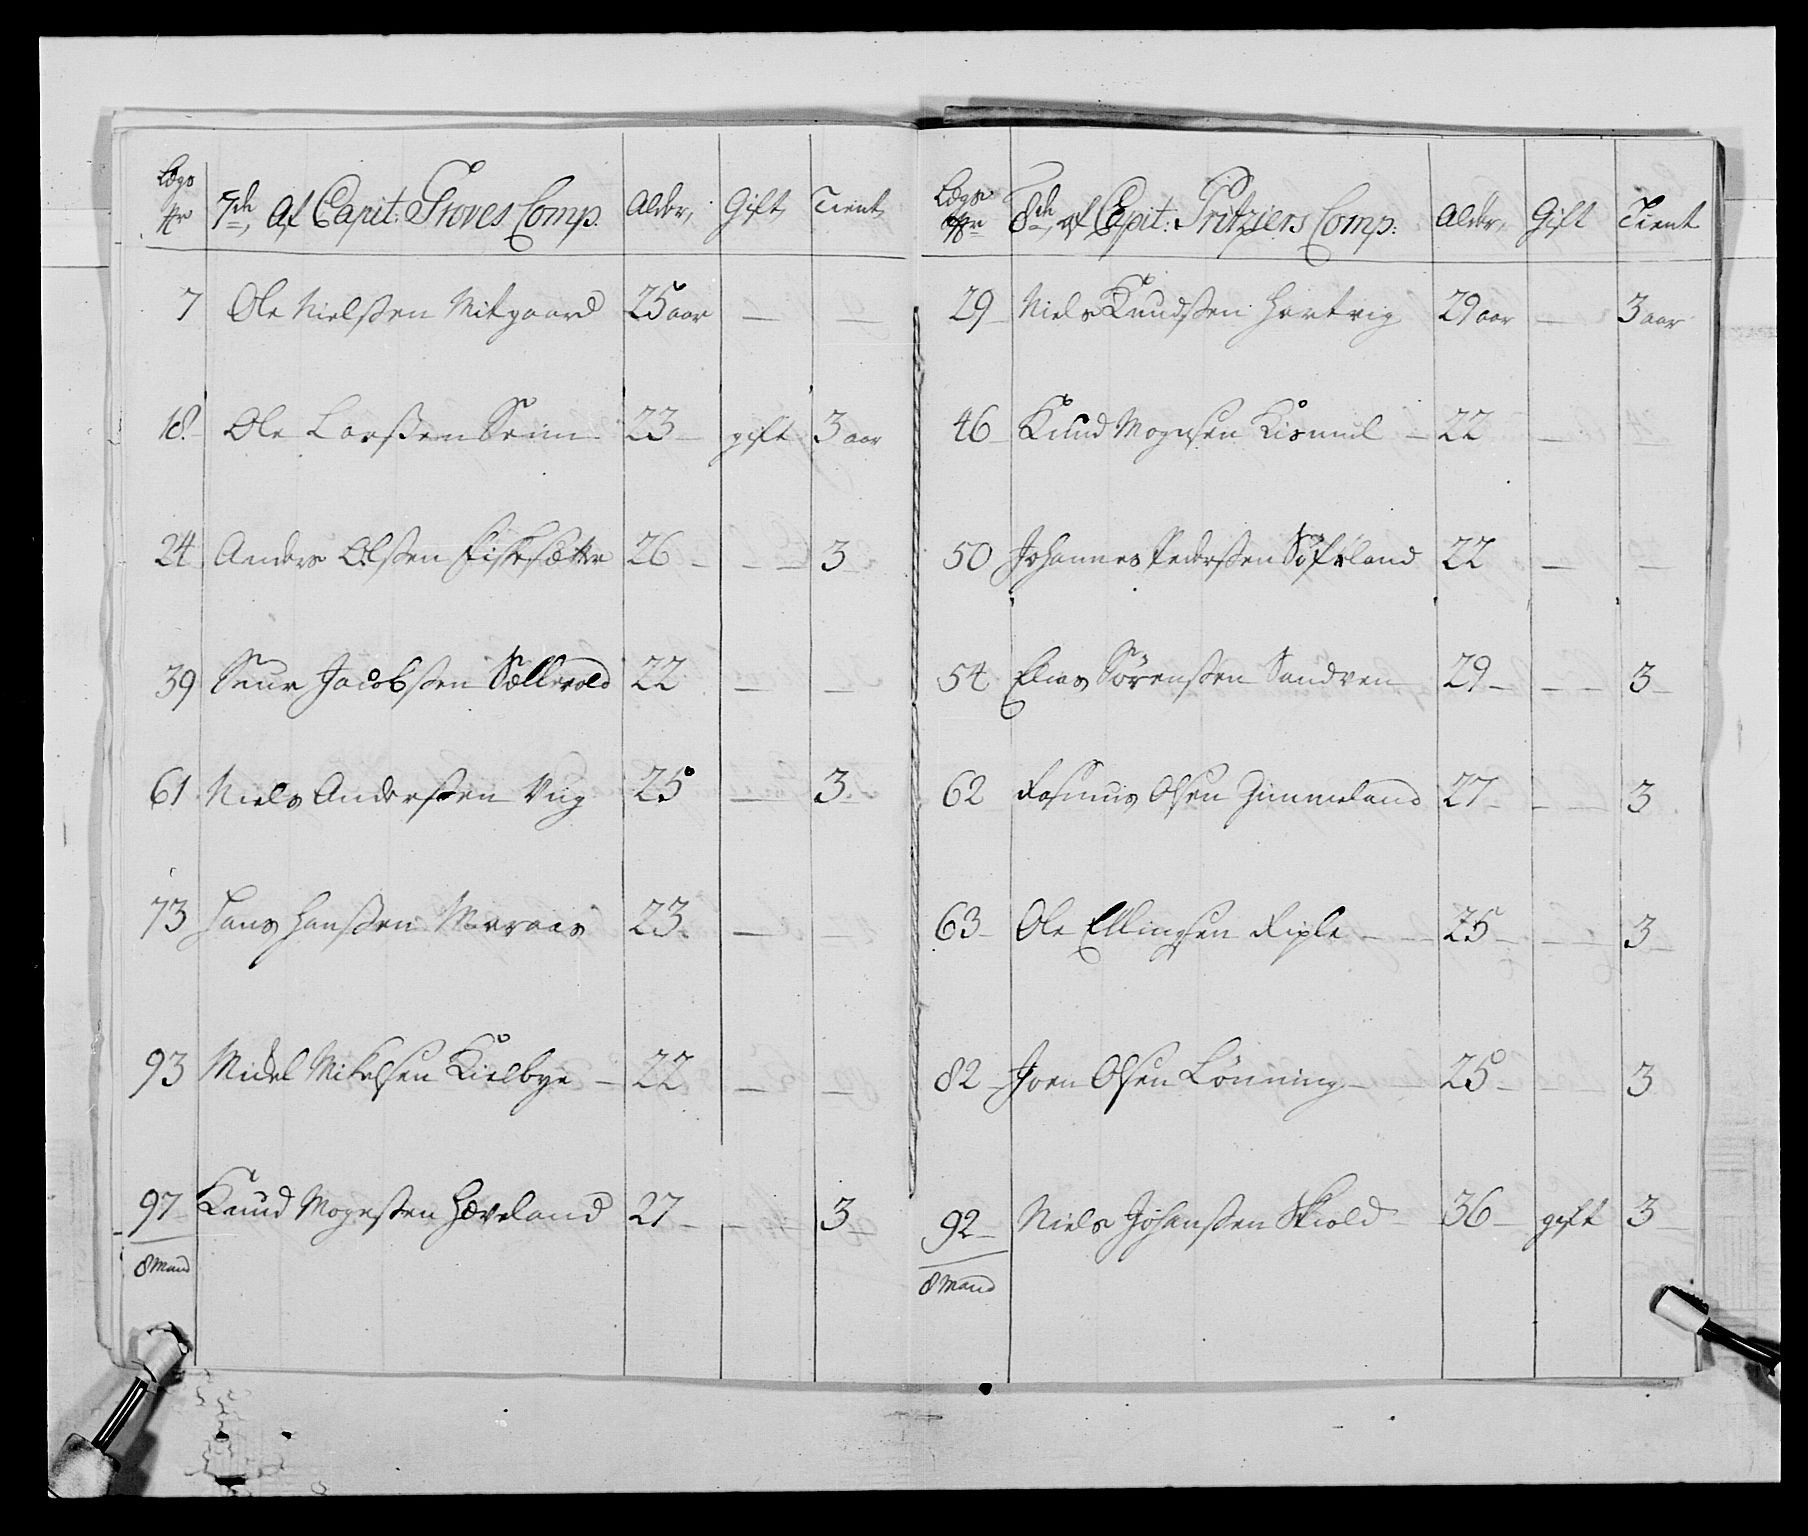 Lægs
No 7de, Af Capit: Groves Comp. Alder, Gift, Tient,
7 Ole Nielssen Mitgaard 25 aar — —
18. Ole Larssen Seim 23 — gift 3 aar
24 Anders Olssen Fiskesætter 26 — — — 3
39 Siur Jacobssen Sællevold 22 — —
61 Niels Anderssen Viig 25 — 3
73 Hans Hanssen Maraas 23. — —
93 Mickel Mikelsen Kielbye — 22 — —
97 Knud Mognssen Hæveland 27 — — 3
8 Mand
Lægs
No 8de, af Capit: Fritziers Comp: Alder, Gift Tient
29 Niels Knudssen Hartvig 29 aar — 3 aar
46 Knud Mognsen Kismul — 22 — —
50 Johannes Pederssen Søfteland 22 — —
54 Elias Sørenssen Sandven 29 — — — 3 —
62 Rasmus Olsen Gimmeland 27 — — — 3
63 — Ole Ellingsen Riple — — 25 — — — 3 —
82 — Joen Olsen Lønning — 25 — — 3
92 — Niels Johanssen Skiold 36 — gift 3
8 Mand